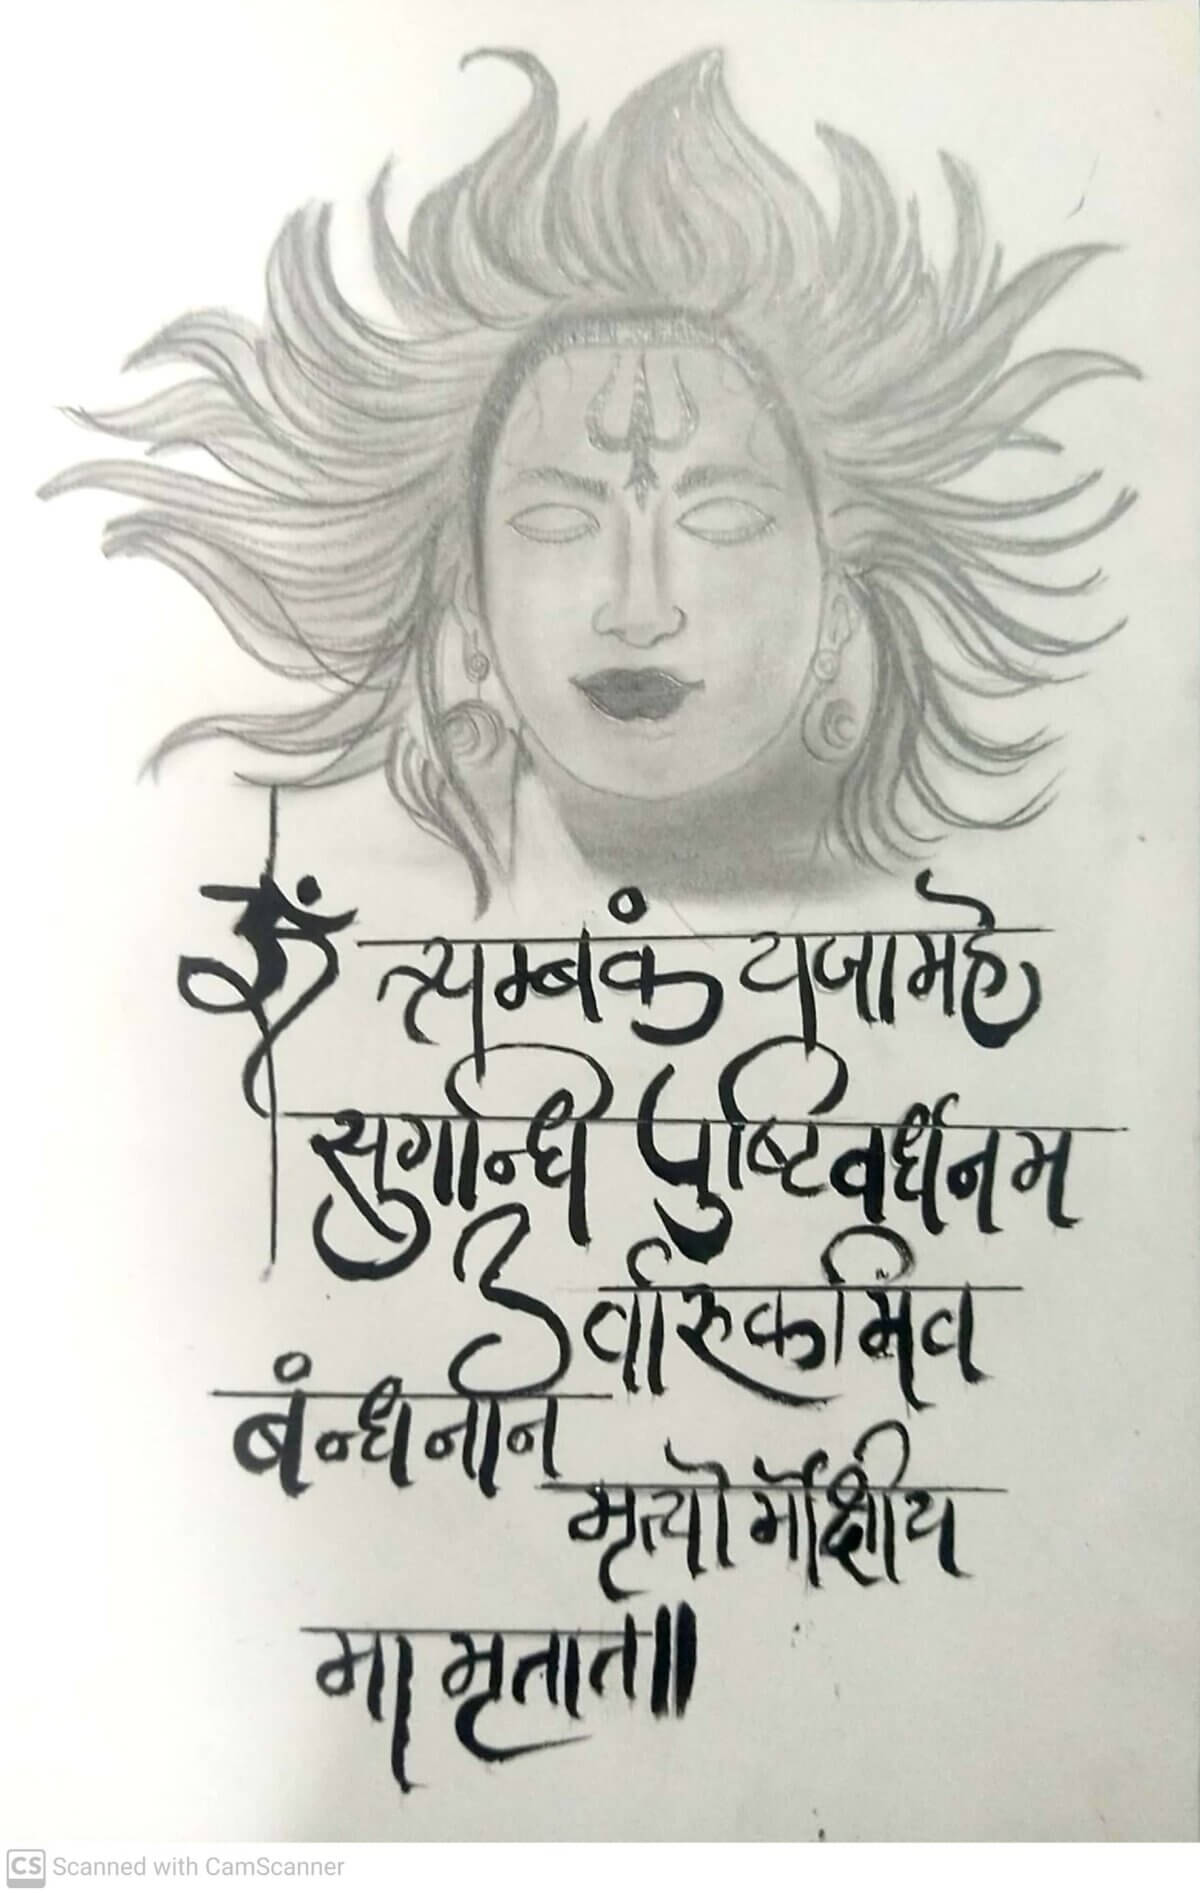 ॐ त्र्यम्बकं यजामहे
सुगन्धि पुष्टिवर्धनम
उर्वारुकमिव
बंन्धनान
मृत्योर्मोक्षीय
मा मृतात॥
CS Scanned with CamScanner